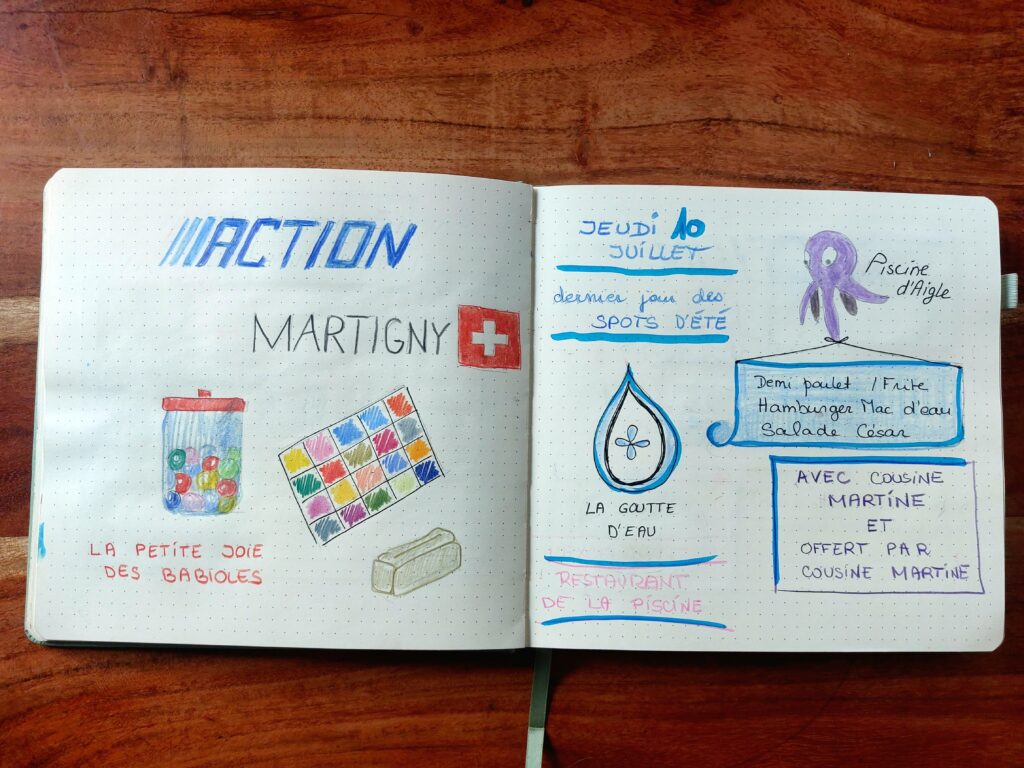 ACTION
MARTIGNY
LA PETITE JOIE
DES BABIOLES
JEUDI 10
JUILLET
dernier jour des
SPOTS D'ÉTÉ
Piscine
d'Aigle
Demi poulet / Frite
Hamburger Mac d'eau
Salade César
LA GOUTTE
D'EAU
AVEC COUSINE
MARTINE
ET
OFFERT PAR
COUSINE MARTINE
RESTAURANT
DE LA PISCINE